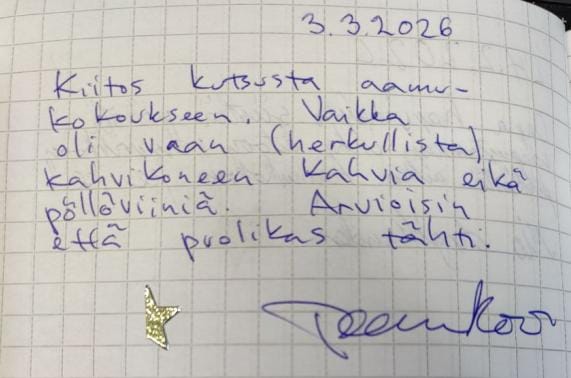 3.3.2026
Kiitos kutsusta aamu-
kokoukseen. Vaikka
oli vaan (herkullista)
kahvikoneen kahvia eikä
pöllöviiniä. Arvioisin
että puolikas tähti.